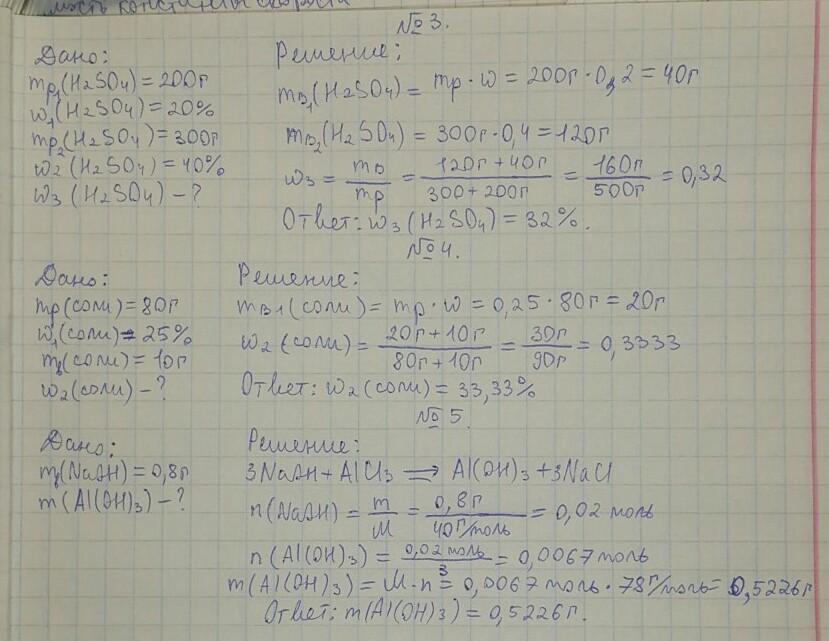 мость константы скорости
№3.
Дано:
mр₁(H2SO4) = 200г
w₁(H2SO4) = 20%
mр₂(H2SO4) = 300г
w₂(H2SO4) = 40%
w₃(H2SO4) - ?
Решение:
mв₁(H2SO4) = mр · w = 200г · 0,2 = 40г
mв₂(H2SO4) = 300г · 0,4 = 120г
w₃ = mв/mр = (120г + 40г)/(300 + 200г) = 160г/500г = 0,32
Ответ: w₃(H2SO4) = 32%.
№4.
Дано:
mр(соли) = 80г
w₁(соли) = 25%
mв(соли) = 10г
w₂(соли) - ?
Решение:
mв1(соли) = mр · w = 0,25 · 80г = 20г
w₂(соли) = (20г + 10г)/(80г + 10г) = 30г/90г = 0,3333
Ответ: w₂(соли) = 33,33%
№5.
Дано:
mв(NaOH) = 0,8г
m(Al(OH)3) - ?
Решение:
3NaOH + AlCl3 ⟹ Al(OH)3 + 3NaCl
n(NaOH) = m/M = 0,8г/40г/моль = 0,02 моль
n(Al(OH)3) = 0,02 моль/3 = 0,0067 моль
m(Al(OH)3) = M · n = 0,0067 моль · 78г/моль = 0,5226г
Ответ: m(Al(OH)3) = 0,5226г.